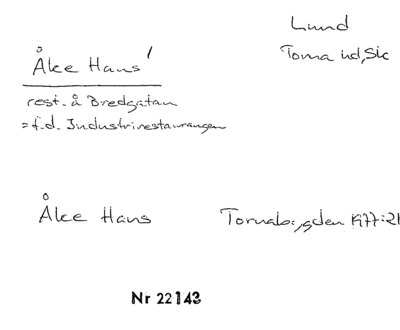 Lund
Torna hd, Sk
Åke Hans'
rest. å Bredgatan
= f.d. Industrirestaurangen
Åke Hans Tornabygden 1977:21
Nr 22143